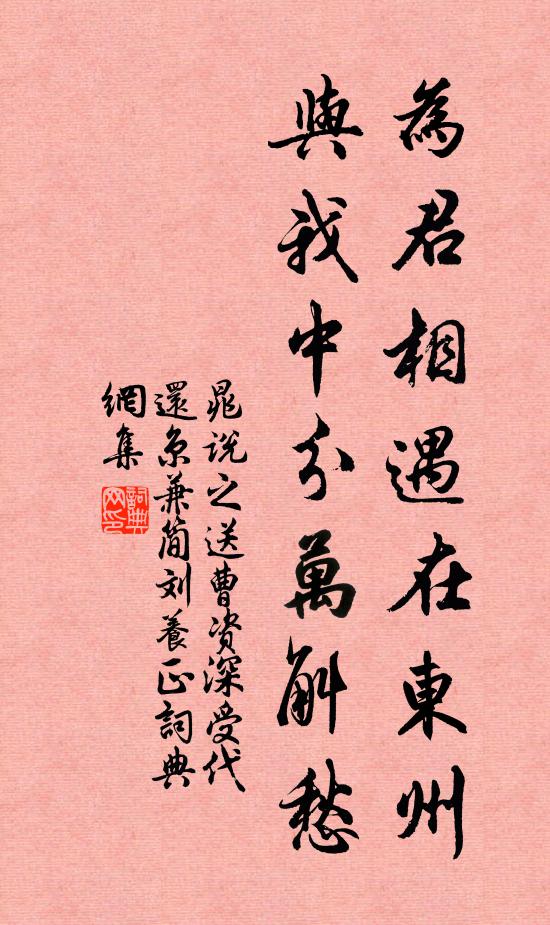 為君相遇在東州
與我中分萬斛愁
晁說之送曹资深受代
還京兼簡刘養正詞典
網集
詞典
网印